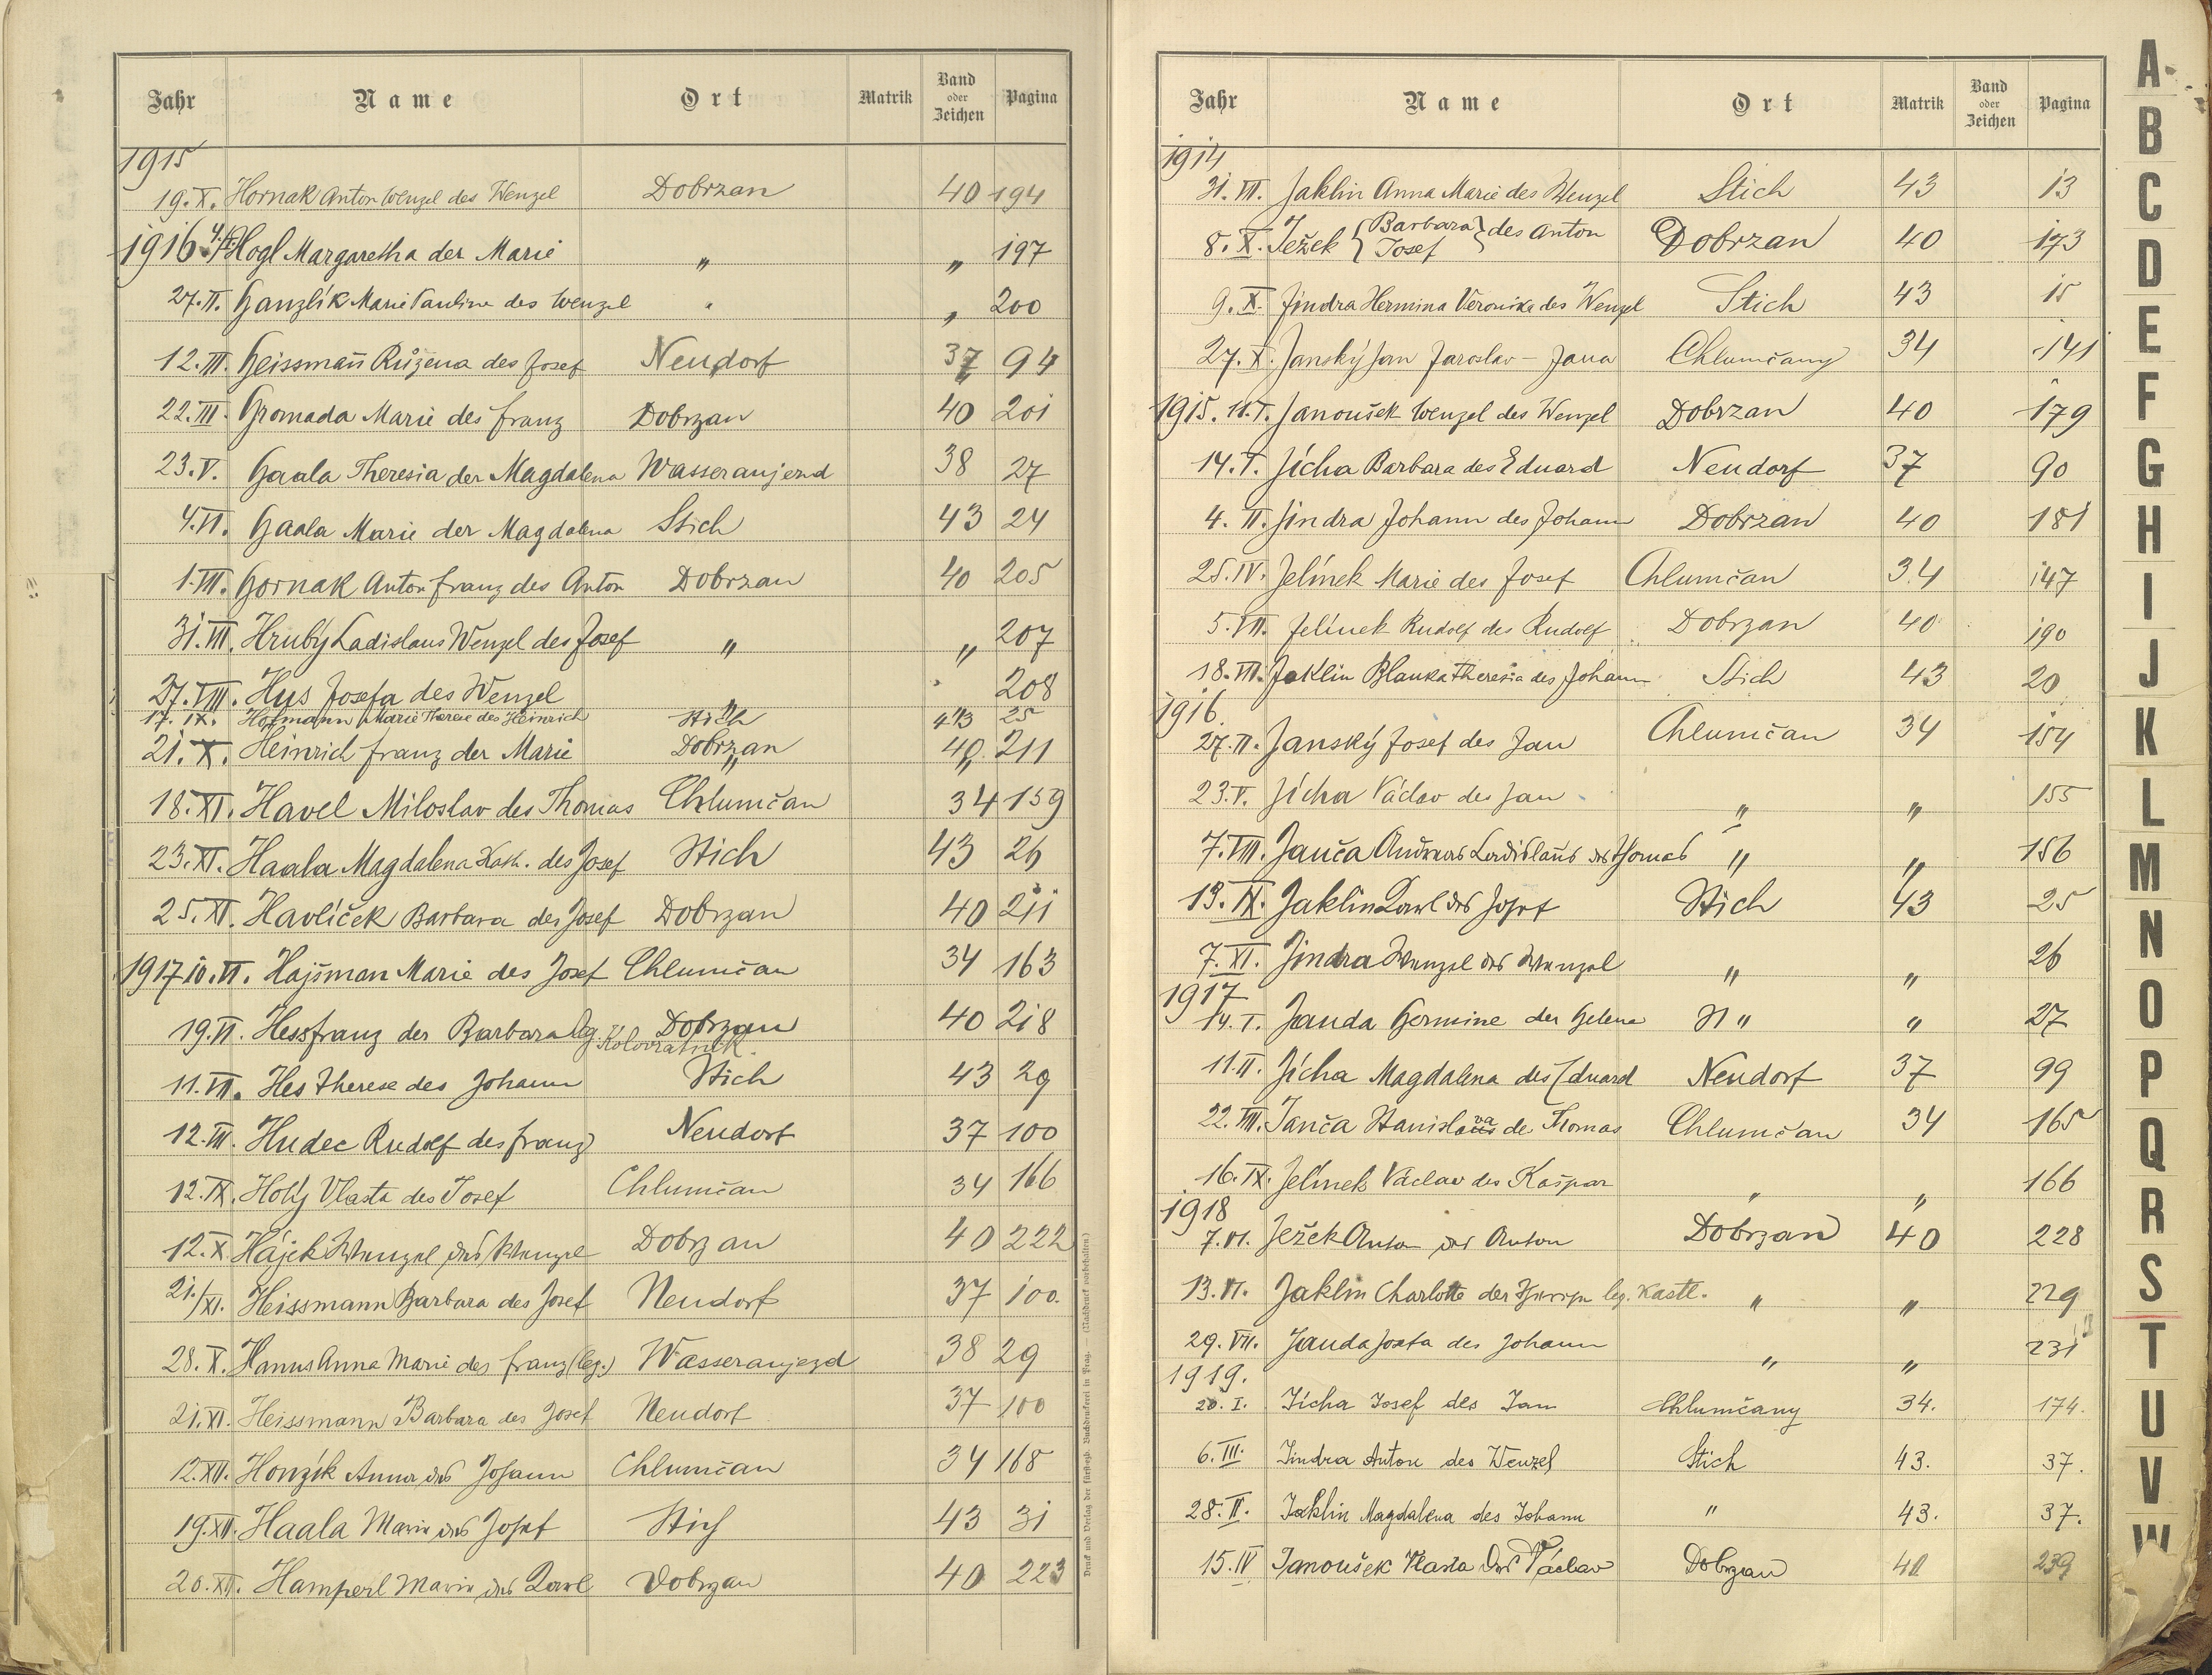 Jahr Name Ort Matrik Band oder Zeichen Pagina
1915
19.X. Hornak Anton Wenzel des Wenzel Dobrzan 40 194
1916 Hogl Margaretha der Marie " " 197
27.II. Hanzlík Marie Pauline des Wenzel " " 200
12.III. Heissmañ Růžena des Josef Neudorf 37 94
22.III. Hromada Marie des Franz Dobrzan 40 201
23.V. Haala Theresia der Magdalena Wasseraujezd 38 27
4.VI. Haala Marie der Magdalena Stich 43 24
1.VII. Hornak Anton Franz des Anton Dobrzan 40 205
31.VII. Hrubý Ladislaus Wenzel des Josef " " 207
27.VIII. Hus Josefa des Wenzel " " 208
17.IX. Hofmann Marie Therese des Heinrich Stich 43 25
21.X. Heinrich Franz der Marie Dobrzan 40 211
18.XI. Havel Miloslav des Thomas Chlumčan 34 159
23.XI. Haala Magdalena Kath. des Josef Stich 43 26
25.XI. Havlíček Barbara des Josef Dobrzan 40 211
1917 10.VI. Hajšman Marie des Josef Chlumčan 34 163
19.VI. Hess Franz der Barbara leg. Kolovratnik Dobrzan 40 218
11.VII. Hes Therese des Johann Stich 43 29
12.VII. Hudec Rudolf des Franz Neudorf 37 100
12.IX. Holý Vlasta des Josef Chlumčan 34 166
12.X. Hájek Wenzel des Wenzel Dobrzan 40 222
21./XI. Heissmann Barbara des Josef Neudorf 37 100.
28.X. Hanus Anna Marie des Franz (leg.) Wasseraujezd 38 29
21.XI. Heissmann Barbara des Josef Neudorf 37 100
12.XII. Honzík Anna des Johann Chlumčan 34 168
19.XII. Haala Marie des Josef Stich 43 31
20.XII. Hamperl Marie des Karl Dobrzan 40 223
Druck und Verlag der fürsterzb. Buchdruckerei in Prag. — (Nachdruck vorbehalten.)
Jahr Name Ort Matrik Band oder Zeichen Pagina
1914
31.VII. Jaklin Anna Marie des Wenzel Stich 43 13
8.X. Ježek { Barbara Josef } des Anton Dobrzan 40 173
9.X. Jindra Hermina Veronika des Wenzel Stich 43 15
27.X. Janský Jan Jaroslav – Jana Chlumčany 34 141
1915. 11.I. Janoušek Wenzel des Wenzel Dobrzan 40 179
14.I. Jícha Barbara des Eduard Neudorf 37 90
4.II. Jindra Johann des Johann Dobrzan 40 181
25.IV. Jelínek Marie des Josef Chlumčan 34 147
5.VII. Jelínek Rudolf des Rudolf Dobrzan 40 190
18.VII. Jaklin Blanka Theresia des Johann Stich 43 20
1916.
27.II. Janský Josef des Jan Chlumčan 34 154
23.V. Jícha Václav des Jan " " 155
7.VIII. Janča Andreas Ladislaus des Thomas " " 156
19.IX. Jaklin Karl des Josef Stich 43 25
7.XI. Jindra Wenzel des Wenzel " " 26
1917
14.I. Janda Hermine der Helene " " 27
11.II. Jícha Magdalena des Eduard Neudorf 37 99
22.VIII. Janča Stanislava de Thomas Chlumčan 34 165
16.IX. Jelínek Václav des Kašpar " " 166
1918
7.VI. Ježek Anton des Anton Dobrzan 40 228
13.VI. Jaklin Charlotte der leg. Kastl. " " 229
29.VII. Janda Josefa des Johann " " 231
1919.
20.I. Jícha Josef des Jan Chlumčany 34. 174.
6.III. Jindra Anton des Wenzel Stich 43. 37.
28.II. Jaklin Magdalena des Johann " 43. 37.
15.IV Janoušek Vlasta des Václav Dobrzan 40 239
A
B
C
D
E
F
G
H
I
J
K
L
M
N
O
P
Q
R
S
T
U
V
W